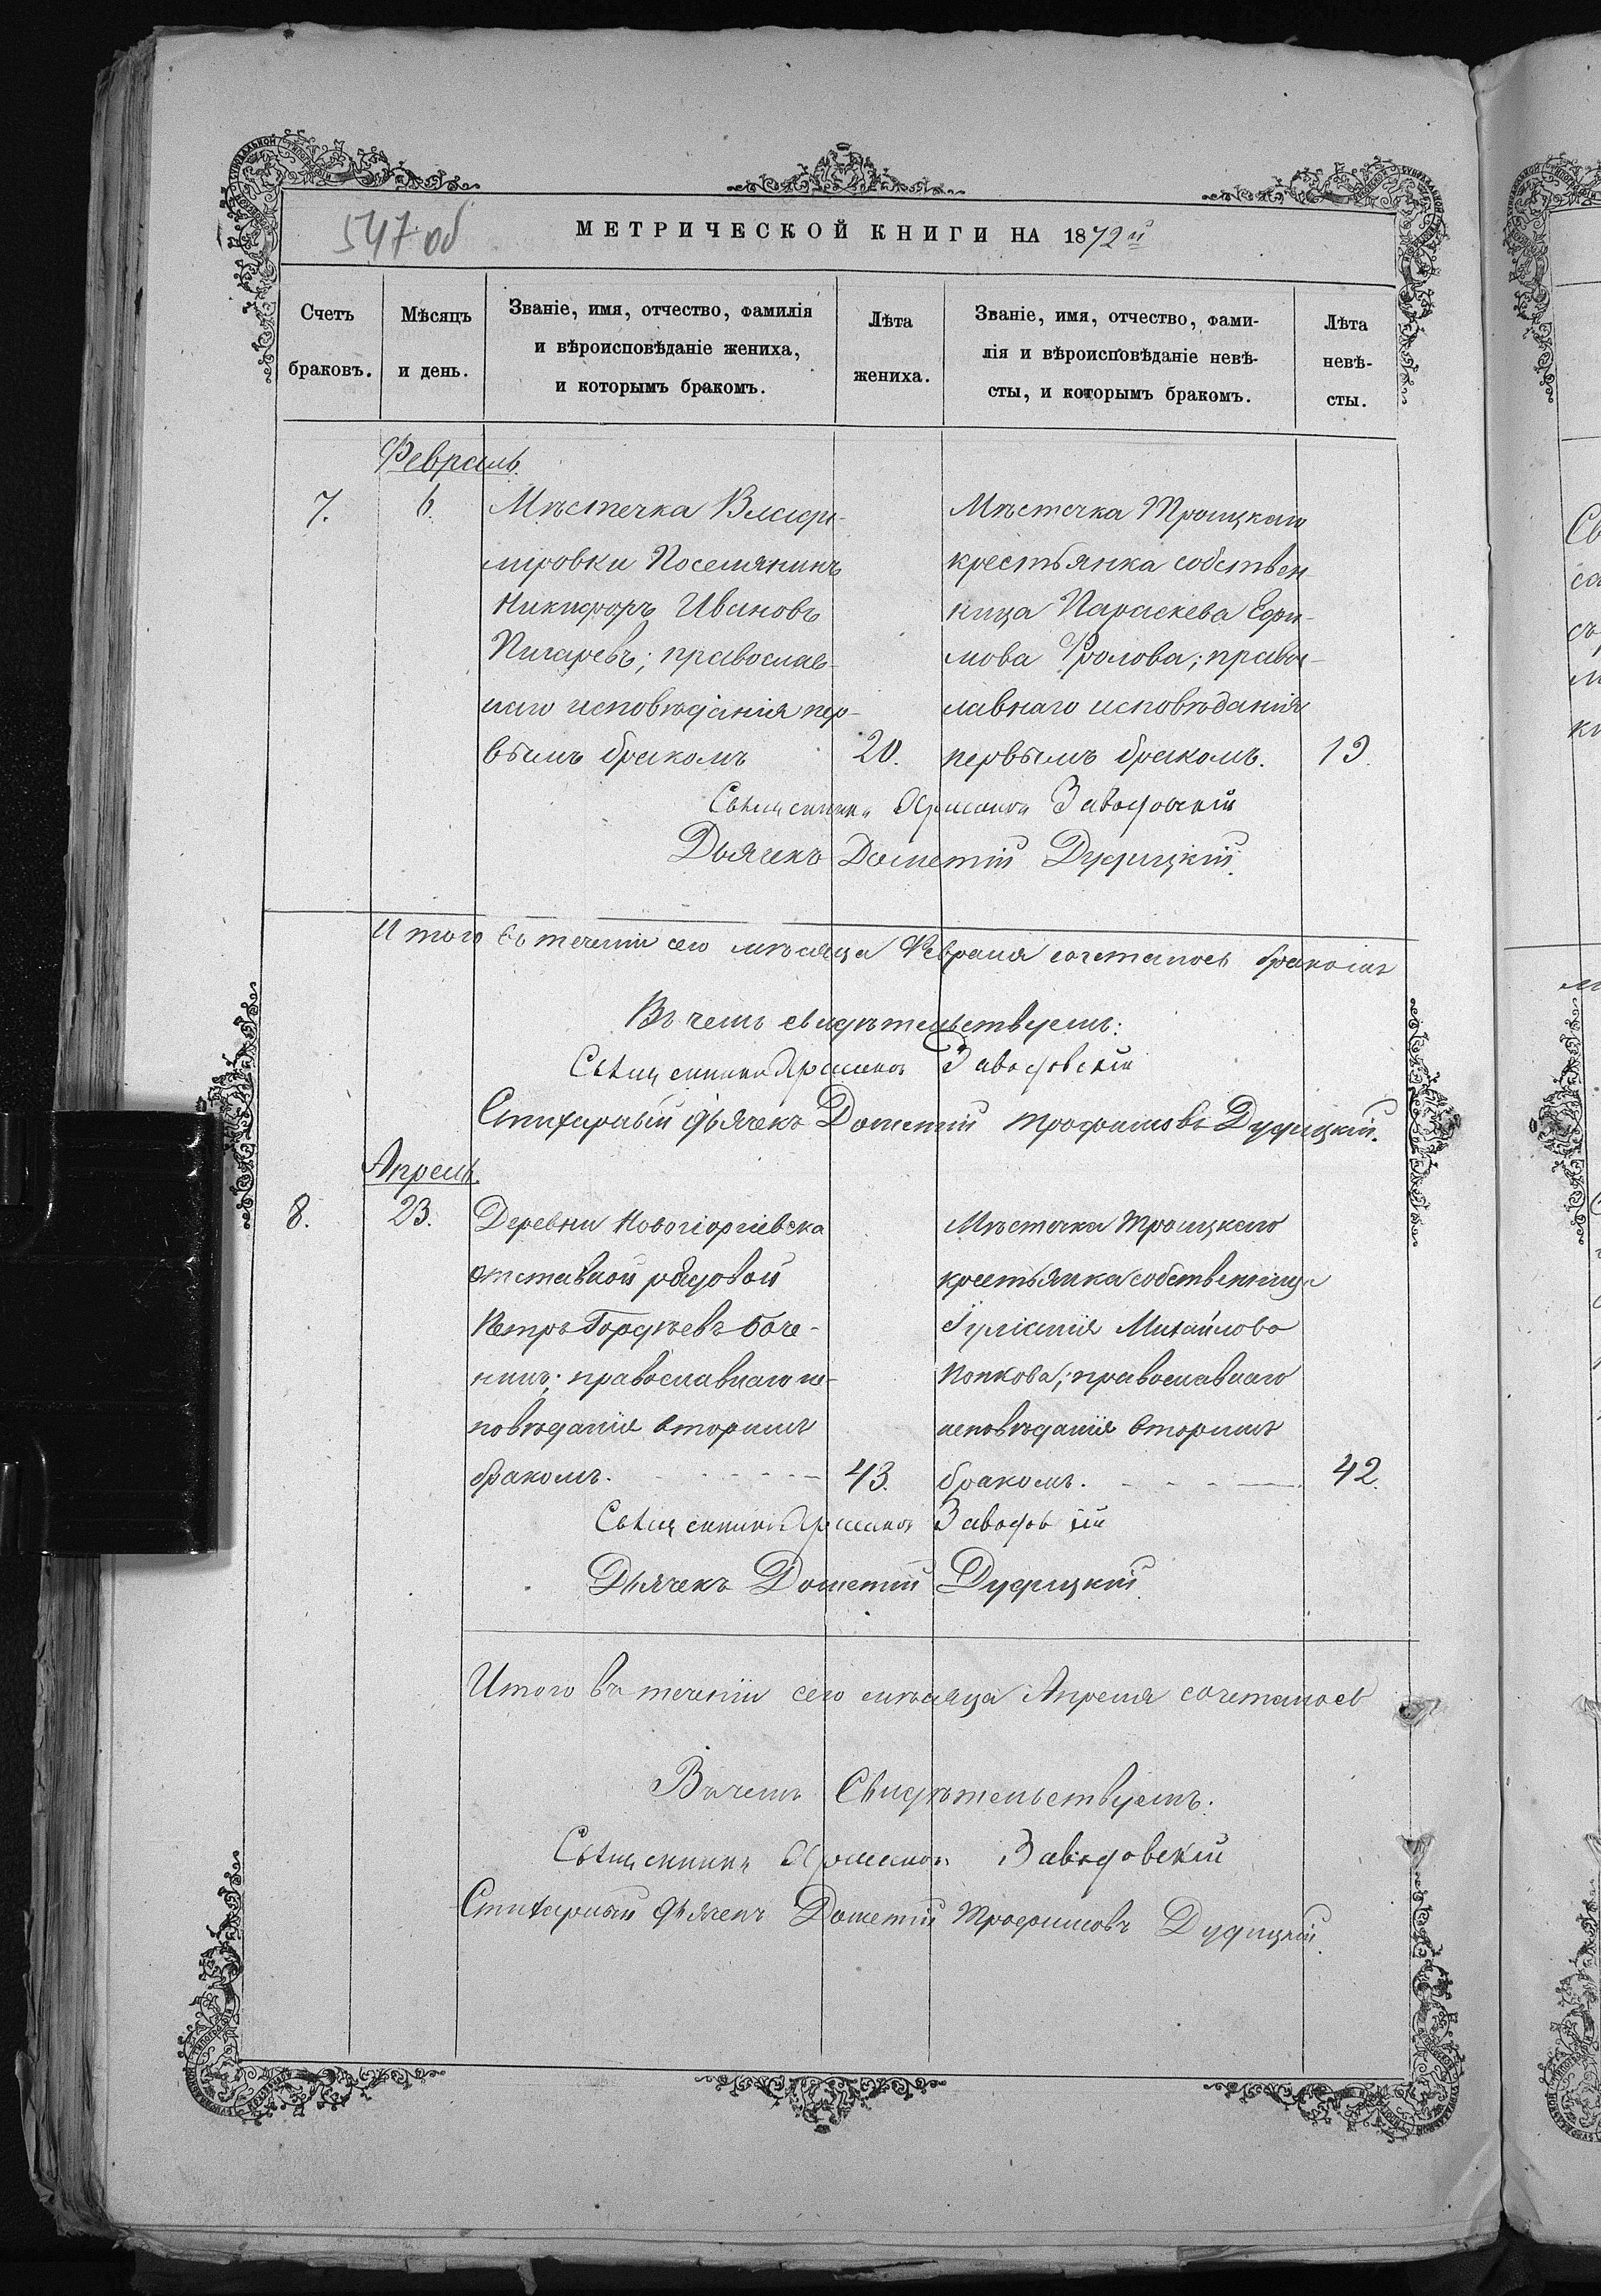 547 об
МЕТРИЧЕСКОЙ КНИГИ НА 1872й
Счетъ браковъ.
Мѣсяцъ и день.
Званіе, имя, отчество, фамилія
и вѣроисповѣданіе жениха,
и которымъ бракомъ.
Лѣта жениха.
Званіе, имя, отчество, фами-
лія и вѣроисповѣданіе невѣ-
сты, и которымъ бракомъ.
Лѣта невѣ-
сты.
Февраль
7.
6
Мѣстечка Влади-
міровки Поселянинъ
Никифоръ Ивановъ
Писаревъ; православ-
наго исповѣданія пер-
вымъ бракомъ
20.
Мѣстечка Троицкаго
крестьянка собствен-
ница Параскева Ефи-
мова Фролова; правос-
лавнаго исповѣданія
первымъ бракомъ.
19.
Священникъ Завадовскій
Дьячекъ Дометій Дудицкій.
Итого въ теченіи сего мѣсяца Февраля сочеталось бракомъ
Въ чемъ свидѣтельствуемъ:
Священникъ Завадовскій
Стихарный дьячекъ Дометій Трофимовъ Дудицкій.
Апрель
8.
23.
Деревни Новогіоргіевска
отставной рядовой
Петръ Гордѣевъ Боче-
нинъ; православнаго ис-
повѣданія вторымъ
бракомъ.
43.
Мѣстечка Троицкаго
крестьянка собственница
Іуліанія Михайлова
Попкова; православнаго
исповѣданія вторымъ
бракомъ.
42.
Священникъ
Дьячекъ Дометій Дудицкій
Итого въ теченіи сего мѣсяца Апреля сочеталось
Въ чемъ Свидѣтельствуемъ.
Священникъ Завадовскій
Стихарный дьячекъ Дометій Трофимовъ Дудицкій.